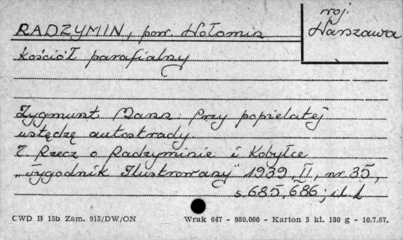 RADZYMIN, pow. Wołomin
woj.
Warszawa
Kościół parafialny
Zygmunt Bann: Przy popielatej
wstędze autostrady.
Z. Rzecz o Radzyminie i Kobyłce
„Tygodnik Ilustrowany" 1939, II, nr. 35,
s. 685, 686; il. 1
CWD B 15b Zam. 915/DW/ON Wrak 647 - 980.000 - Karton 5 kl. 180 g - 10.7.67.